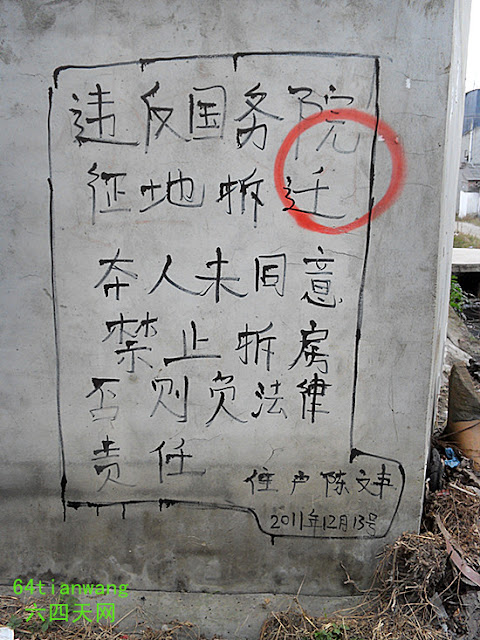 违反国务院
征地拆迁
本人未同意
禁止拆房
否则负法律
责任
住户陈文丰
2011年12月13号
64tianwang
六四天网